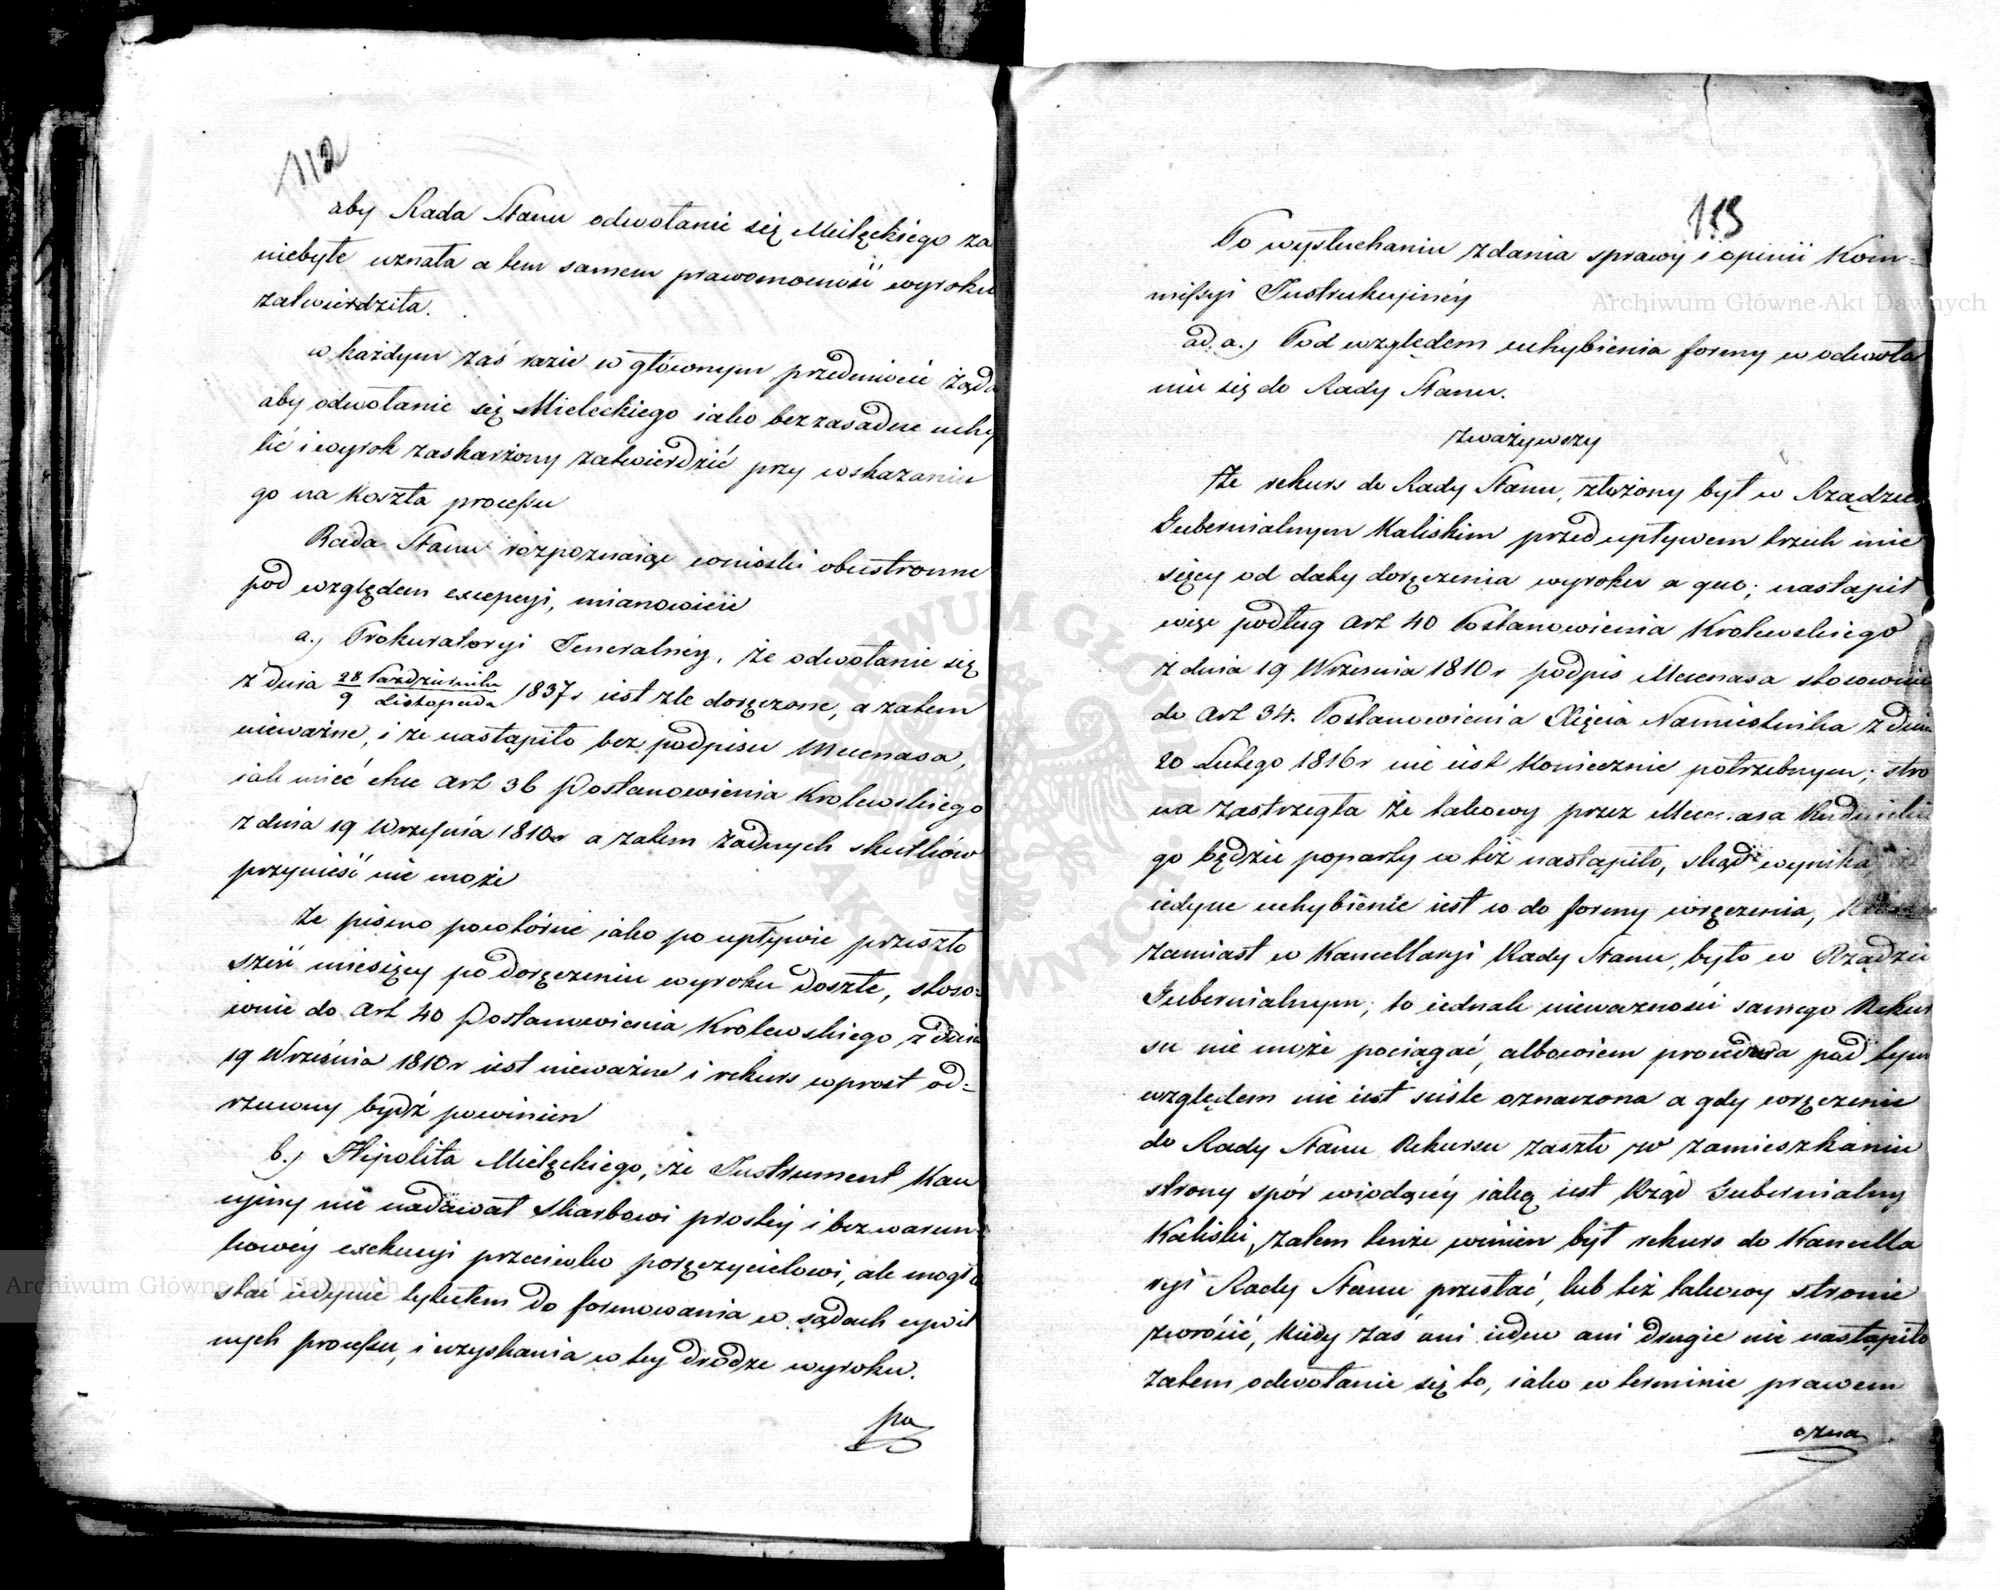 112
aby Rada Stanu odwołanie się Mielęckiego za
niebyłe uznała a tem samem prawomocność wyroku
zatwierdziła.
w każdym zaś razie w głównym przedmiocie żąda
aby odwołanie się Mieleckiego iako bezzasadne uchy
lić i wyrok zaskarżony zatwierdzić przy wskazaniu
go na koszta processu
Rada Stanu rozpoznaiąc wnioski obustronne
pod względem excepcyi, mianowicie
a.) Prokuratoryi Jeneralnéy, że odwołanie się
z dnia 28 Października / 9 Listopada 1837 r iest źle doręczone, a zatem
nieważne, i że nastąpiło bez podpisu Mecenasa,
iak mieć chce Art 36 Postanowienia Krolewskiego
z dnia 19 Września 1810 r a zatem żadnych skutków
przynieść nie może
Że pismo powtórne iako po upływie przeszło
sześć miesięcy po doręczeniu wyroku doszłe, stoso-
wnie do Art 40 Postanowienia Krolewskiego z dnia
19 Września 1810 r iest nieważne i rekurs wprost od-
rzucony bydź powinien
b.) Hipolita Mielęckiego, że Instrument Kau
cyiny nie nadawał Skarbowi prostéj i bezwarun
kowéy exekucyi przeciwko poręczycielowi, ale mógł
stać iedynie tytułem do formowania w sądach cywil
nych processu, i uzyskania w tey drodze wyroku.
po
113
Po wysłuchaniu zdania sprawy i opinii Kom-
missyi Instrukcyinéy
ad. a.) Pod względem uchybienia formy w odwoła
niu się do Rady Stanu.
zważywszy
Że rekurs do Rady Stanu, złożony był w Rządzie
Gubernialnym Kaliskim przed upływem trzech mie
sięcy od daty doręczenia wyroku a quo; nastąpił
więc podług Art 40 Postanowienia Krolewskiego
z dnia 19 Września 1810 r podpis Mecenasa stosownie
do Art 34. Postanowienia Xięcia Namiestnika z dnia
20 Lutego 1816 r nie iest koniecznie potrzebnym; stro
na zastrzegła że takowy przez Mecenasa Rudnickie
go będzie poparty co też nastąpiło, skąd wynika że
iedyne uchybienie iest co do formy wręczenia, które
zamiast w Kancellaryi Rady Stanu, było w Rządzie
Gubernialnym, to iednak nieważności samego Rekur
su nie może pociągać, albowiem procedura pod tym
względem nie iest ściśle oznaczona a gdy wręczenie
do Rady Stanu Rekursu zaszło w zamieszkaniu
strony spór wiodącéy iaką iest Rząd Gubernialny
Kaliski, zatem tenże winien był rekurs do Kancella
ryi Rady Stanu przesłać, lub też takowy stronie
zwrócić, kiedy zaś ani iedno ani drugie nie nastąpiło
zatem odwołanie się to, iako w terminie prawem
ozna
Archiwum Główne Akt Dawnych
Archiwum Główne Akt Dawnych
ARCHIWUM GŁÓWNE AKT DAWNYCH